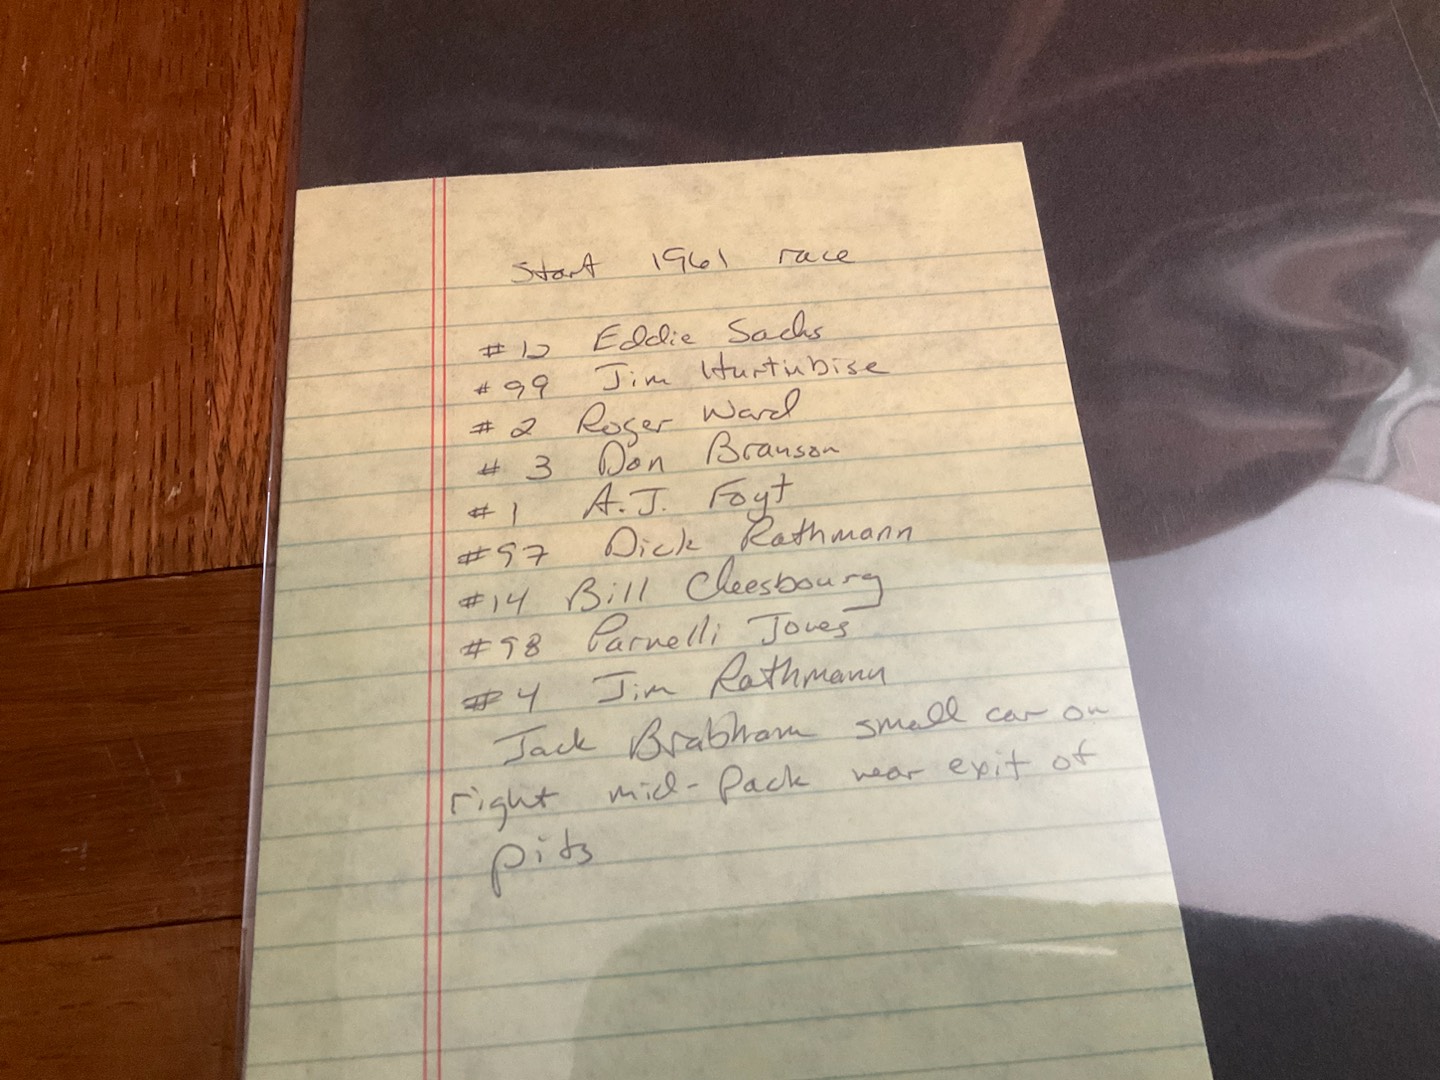 Start 1961 race
#12 Eddie Sachs
#99 Jim Hurtubise
#2 Roger Ward
#3 Don Branson
#1 A.J. Foyt
#97 Dick Rathmann
#14 Bill Cheesbourg
#98 Parnelli Jones
#4 Jim Rathmann
Jack Brabham small car on
right mid-pack near exit of
pits